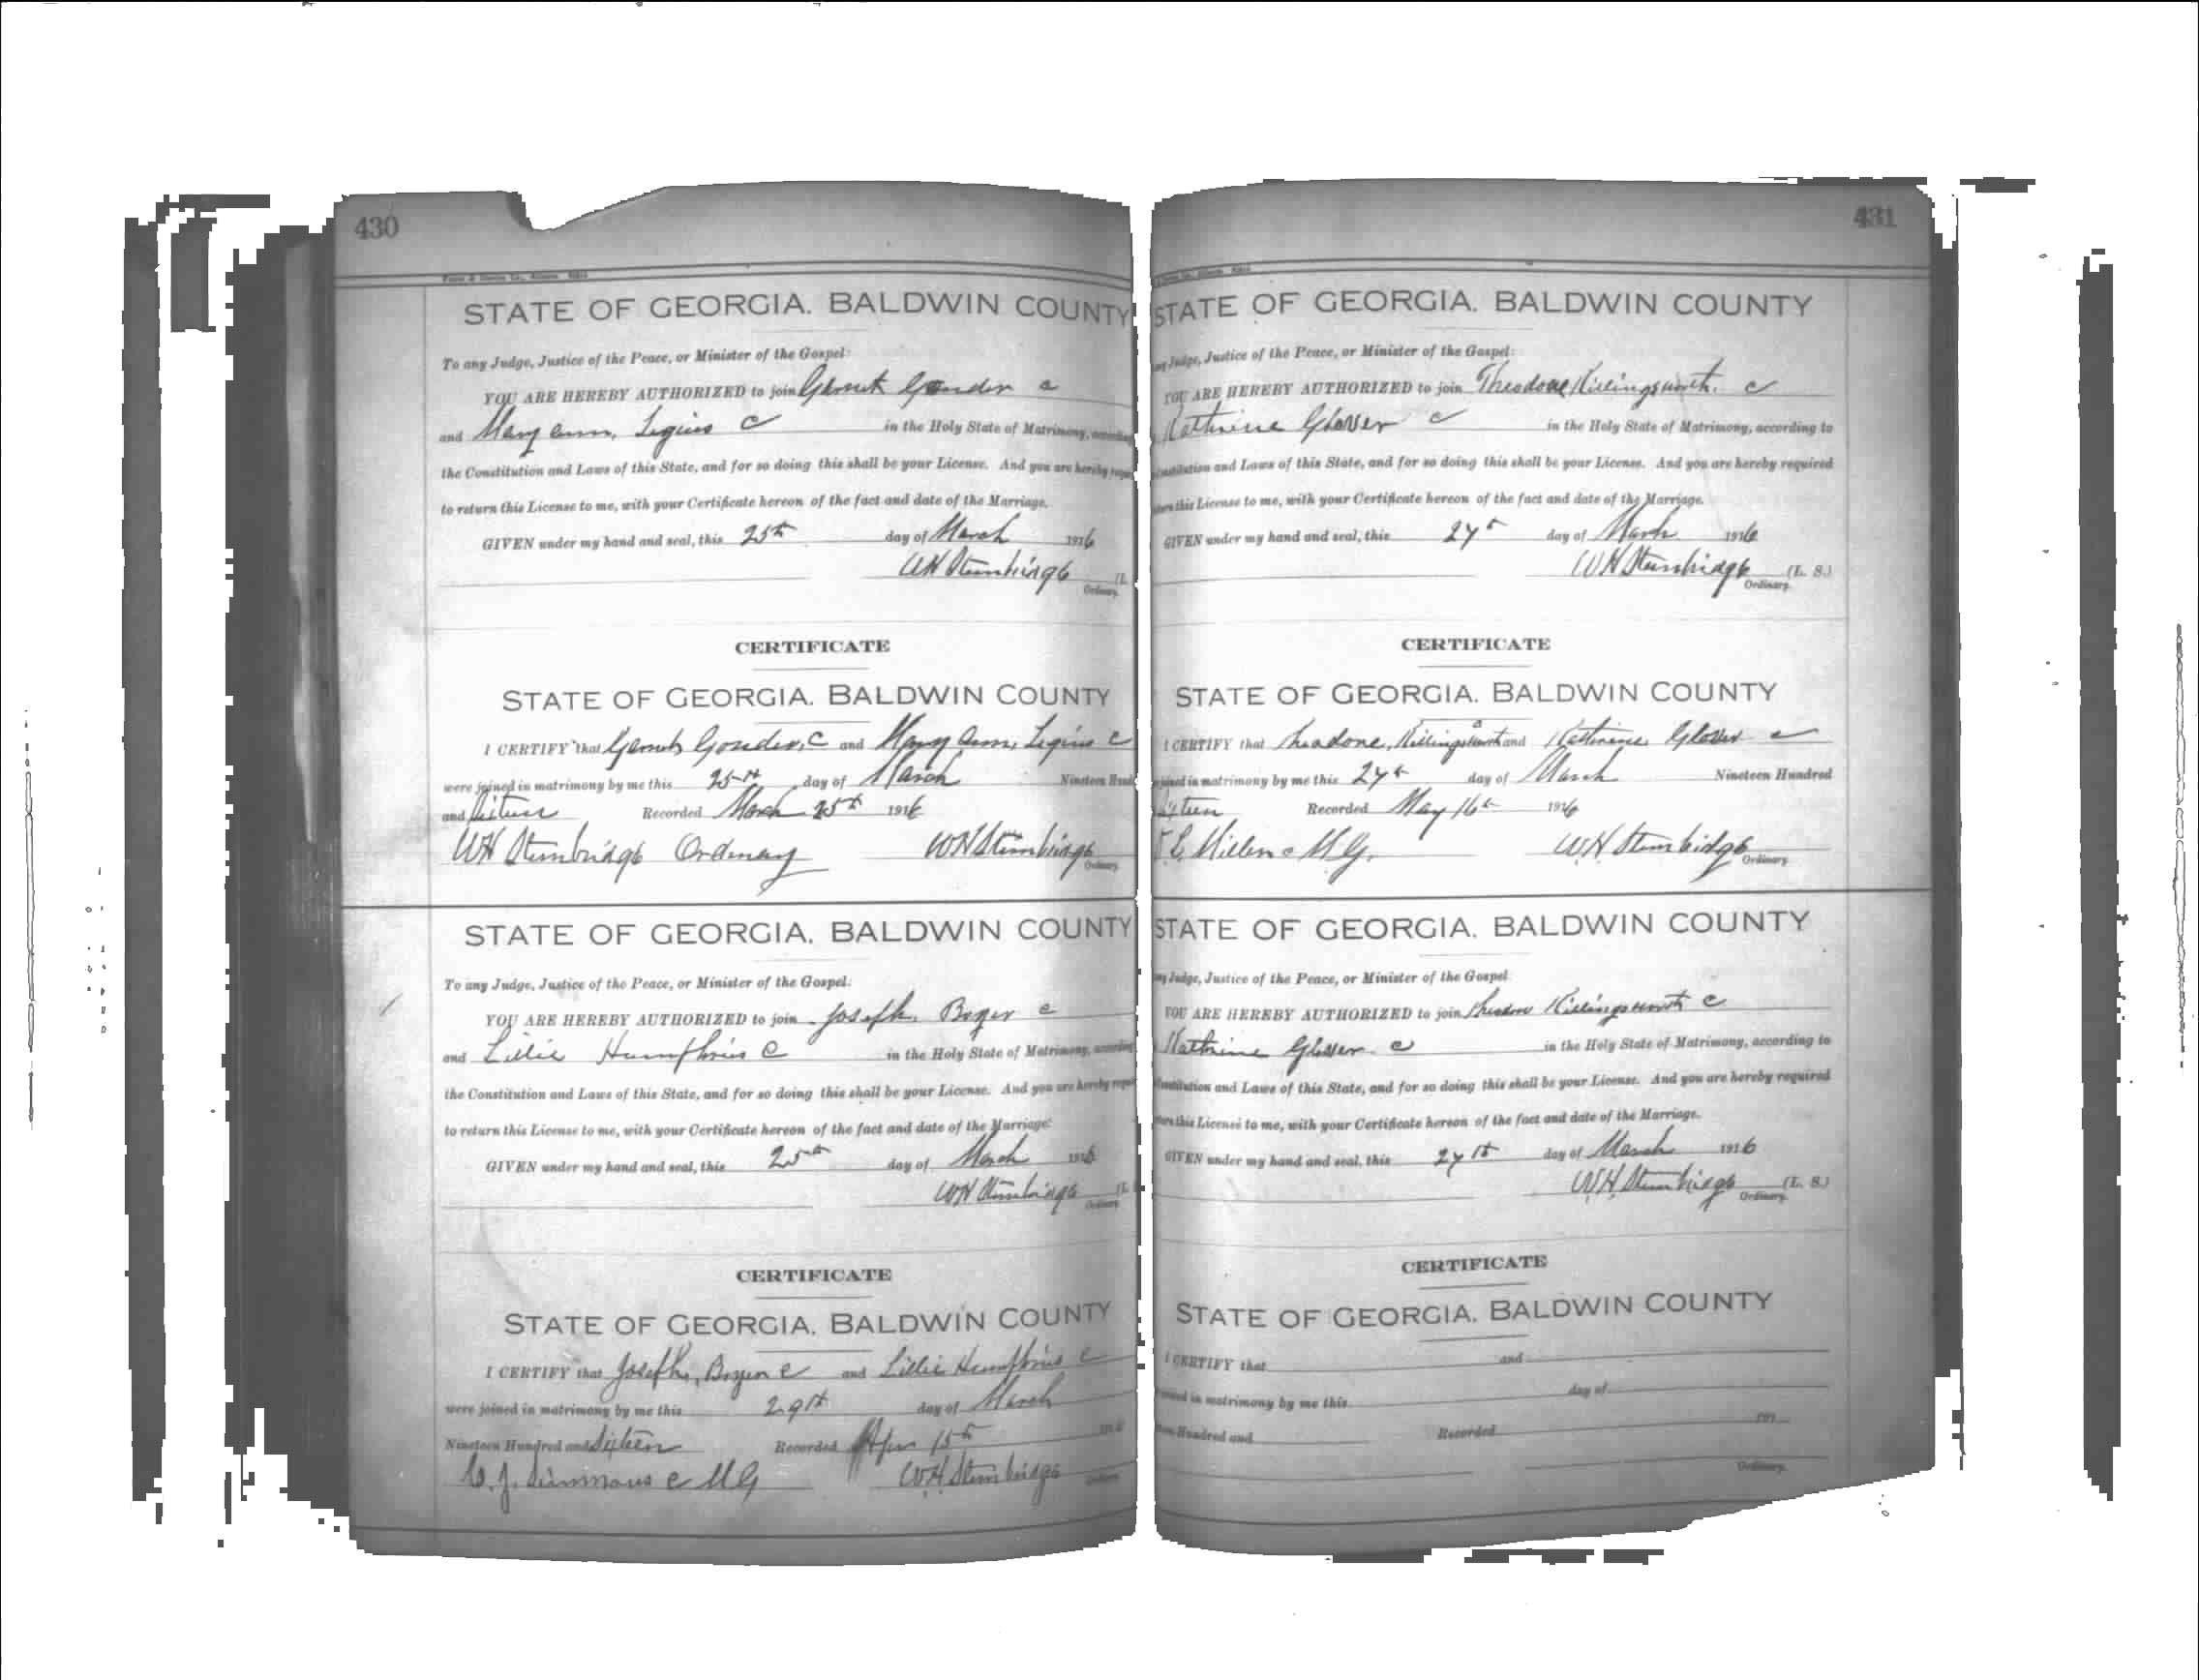 430
STATE OF GEORGIA. BALDWIN COUNTY
To any Judge, Justice of the Peace, or Minister of the Gospel:
YOU ARE HEREBY AUTHORIZED to join c
and Mary ann, c in the Holy State of Matrimony, according
the Constitution and Laws of this State, and for so doing this shall be your License. And you are hereby
to return this License to me, with your Certificate hereon of the fact and date of the Marriage.
GIVEN under my hand and seal, this 25th day of March 1916
WH Stembridge (L.
Ordinary.
CERTIFICATE
STATE OF GEORGIA. BALDWIN COUNTY
I CERTIFY that Gonder, C and Mary Ann, c
were joined in matrimony by me this 25th day of March Nineteen
and Recorded March 25th 1916
WH Stembridge Ordinary WH Stembridge
Ordinary
STATE OF GEORGIA. BALDWIN COUNTY
To any Judge, Justice of the Peace, or Minister of the Gospel:
YOU ARE HEREBY AUTHORIZED to join Joseph, c
and Lillie Humphries C in the Holy State of Matrimony, according
the Constitution and Laws of this State, and for so doing this shall be your License. And you are hereby
to return this License to me, with your Certificate hereon of the fact and date of the Marriage.
GIVEN under my hand and seal, this 25th day of March 1916
WH Stembridge (L
Ordinary
CERTIFICATE
STATE OF GEORGIA. BALDWIN COUNTY
I CERTIFY that Joseph, c and Lillie Humphries c
were joined in matrimony by me this 29th day of March
Nineteen Hundred and Sixteen Recorded Apr 15th
Simmons c MG WH Stembridge
431
STATE OF GEORGIA. BALDWIN COUNTY
Judge, Justice of the Peace, or Minister of the Gospel:
YOU ARE HEREBY AUTHORIZED to join Theodore Killingsworth. c
Kathrine Glover c in the Holy State of Matrimony, according to
and Laws of this State, and for so doing this shall be your License. And you are hereby required
this License to me, with your Certificate hereon of the fact and date of the Marriage.
GIVEN under my hand and seal, this 27th day of March 1916
WH Stembridge (L. S.)
Ordinary.
CERTIFICATE
STATE OF GEORGIA. BALDWIN COUNTY
I CERTIFY that Theodore, Killingsworth and Kathrine Glover c
joined in matrimony by me this 27th day of March Nineteen Hundred
Recorded May 16th 1916
M.G. WH Stembridge
Ordinary
STATE OF GEORGIA. BALDWIN COUNTY
Judge, Justice of the Peace, or Minister of the Gospel
YOU ARE HEREBY AUTHORIZED to join Killingsworth C
Kathrine Glover. c in the Holy State of Matrimony, according to
and Laws of this State, and for so doing this shall be your License. And you are hereby required
this License to me, with your Certificate hereon of the fact and date of the Marriage.
GIVEN under my hand and seal, this 27th day of March 1916
W.H. Stembridge (L. S.)
Ordinary.
CERTIFICATE
STATE OF GEORGIA. BALDWIN COUNTY
I CERTIFY that and
in matrimony by me this day of
Hundred and Recorded 191
Ordinary.